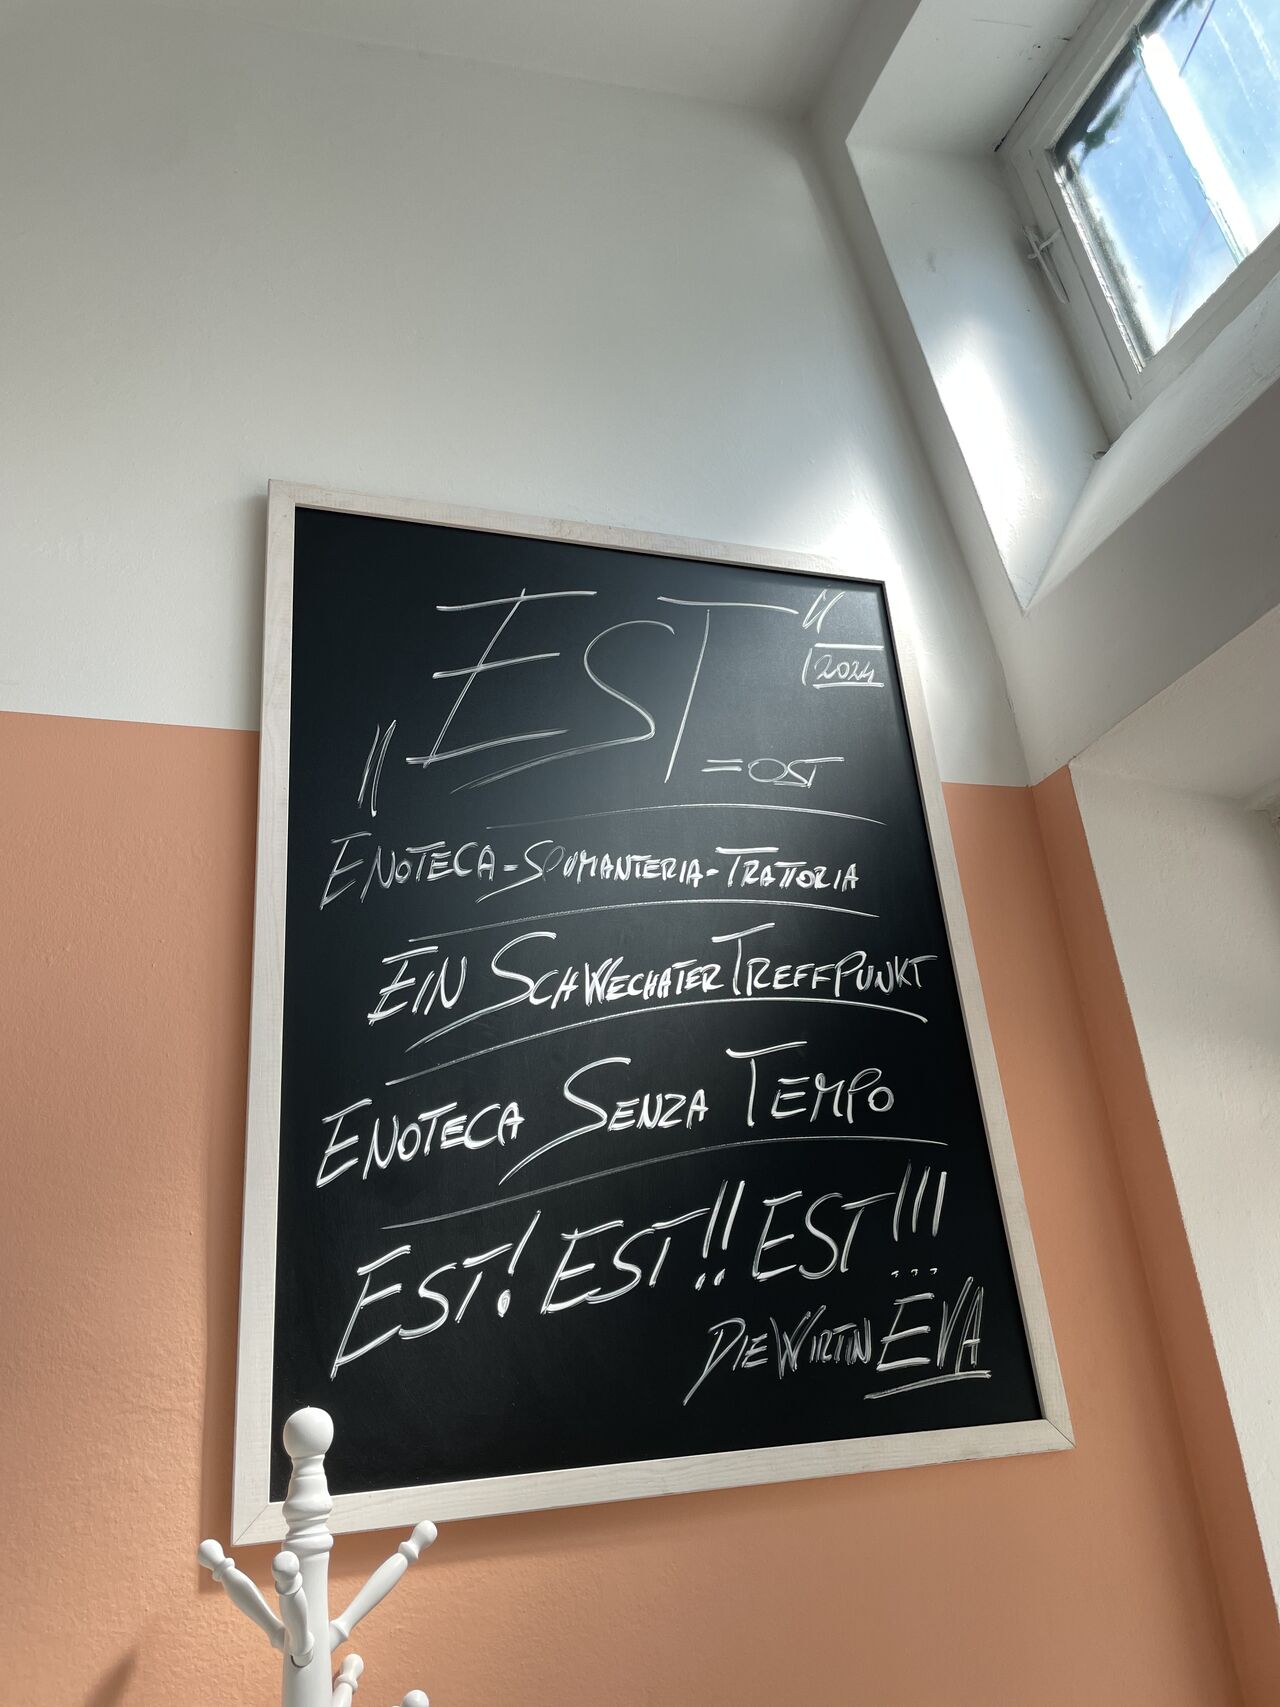 „EST“ 2024
= OST
ENOTECA-SPUMANTERIA-TRATTORIA
EIN SCHWECHATER TREFFPUNKT
ENOTECA SENZA TEMPO
EST! EST!! EST!!!
DIE WIRTIN EVA